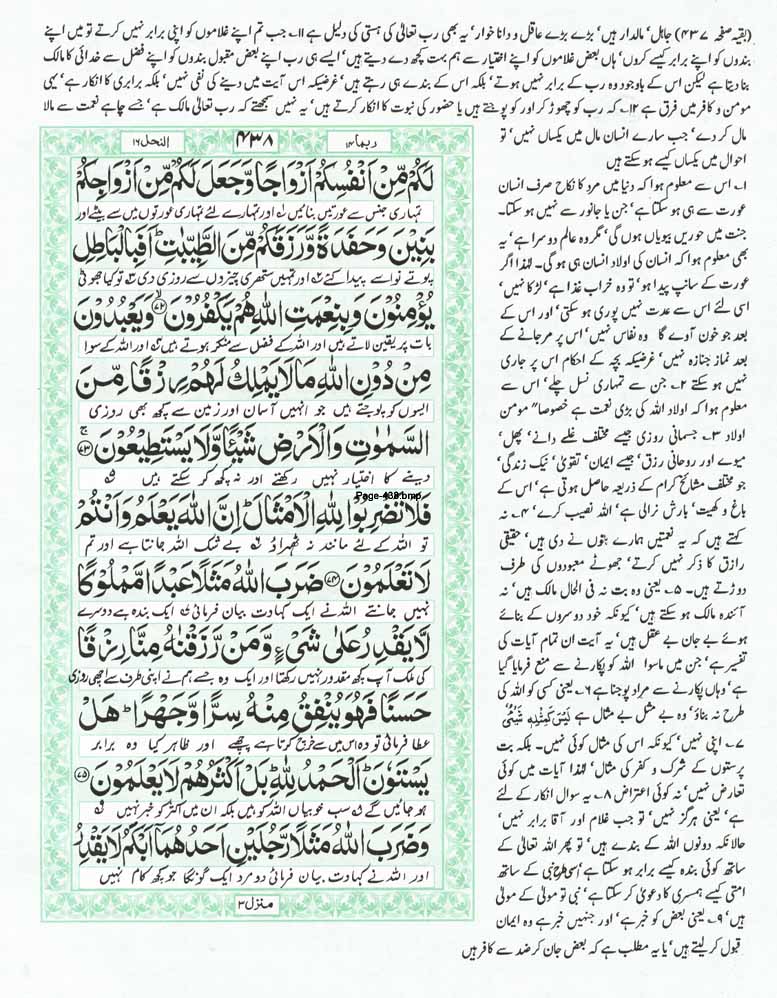 (بقیہ صفحہ ۴۳۷) جاہل‘ مالدار ہیں‘ بڑے بڑے عاقل و دانا خوار‘ یہ بھی رب تعالیٰ کی ہستی کی دلیل ہے ۱۱؎ جب تم اپنے غلاموں کو اپنی برابر نہیں کرتے تو میں اپنے
بندوں کو اپنے برابر کیسے کروں‘ ہاں بعض غلاموں کو اپنے اختیار سے ہم بہت کچھ دے دیتے ہیں‘ ایسے ہی رب اپنے بعض مقبول بندوں کو اپنے فضل سے خدائی کا مالک
بنا دیتا ہے لیکن اس کے باوجود وہ رب کے برابر نہیں ہوتے‘ بلکہ اس کے بندے ہی رہتے ہیں‘ غرضیکہ اس آیت میں دینے کی نفی نہیں‘ بلکہ برابری کا انکار ہے‘ یہی
مومن و کافر میں فرق ہے ۱۲؎ کہ رب کو چھوڑ کر اور کو پوجتے ہیں یا حضور کی نبوت کا انکار کرتے ہیں‘ یہ نہیں سمجھتے کہ رب تعالیٰ مالک ہے‘ جسے چاہے نعمت سے مالا
مال کر دے‘ جب سارے انسان مال میں یکساں نہیں‘ تو
احوال میں یکساں کیسے ہو سکتے ہیں
۱؎ اس سے معلوم ہوا کہ دنیا میں مرد کا نکاح صرف انسان
عورت سے ہی ہو سکتا ہے‘ جن یا جانور سے نہیں ہو سکتا۔
جنت میں حوریں بیویاں ہوں گی‘ مگر وہ عالم دوسرا ہے‘ یہ
بھی معلوم ہوا کہ انسان کی اولاد انسان ہی ہو گی۔ لہٰذا اگر
عورت کے سانپ پیدا ہو‘ تو وہ خراب غذا ہے‘ لڑکا نہیں‘
اسی لئے اس سے عدت نہیں پوری ہو سکتی‘ اور اس کے
بعد جو خون آوے گا وہ نفاس نہیں‘ اس پر مر جانے کے
بعد نماز جنازہ نہیں‘ غرضیکہ بچہ کے احکام اس پر جاری
نہیں ہو سکتے ۲؎ جن سے تمہاری نسل چلے‘ اس سے
معلوم ہوا کہ اولاد اللہ کی بڑی نعمت ہے خصوصاً مومن
اولاد ۳؎ جسمانی روزی جیسے مختلف غلے دانے‘ پھل‘
میوے اور روحانی رزق‘ جیسے ایمان‘ تقویٰ‘ نیک زندگی‘
جو مختلف مشائخ کرام کے ذریعہ حاصل ہوتی ہے‘ اس کے
باغ و کھیت‘ بارش نرالی ہے‘ اللہ نصیب کرے‘ ۴؎ نہ
کہتے ہیں کہ یہ نعمتیں ہمارے بتوں نے دی ہیں‘ حقیقی
رازق کا ذکر نہیں کرتے‘ جھوٹے معبودوں کی طرف
دوڑتے ہیں۔ ۵؎ یعنی وہ بت نہ فی الحال مالک ہیں‘ نہ
آئندہ مالک ہو سکتے ہیں‘ کیونکہ خود دوسروں کے بنائے
ہوئے بے جان بے عقل ہیں‘ یہ آیت ان تمام آیات کی
تفسیر ہے‘ جن میں ماسوا اللہ کو پکارنے سے منع فرمایا گیا
ہے‘ وہاں پکارنے سے مراد پوجنا ہے ۶؎ یعنی کسی کو اللہ کی
طرح نہ بناؤ‘ وہ بے مثل بے مثال ہے لَیْسَ کَمِثْلِہٖ شَیْئٌ
۷؎ اپنی نہیں‘ کیونکہ اس کی مثال کوئی نہیں۔ بلکہ بت
پرستوں کے شرک و کفر کی مثال‘ لہٰذا آیات میں کوئی
تعارض نہیں‘ نہ کوئی اعتراض ۸؎ یہ سوال انکار کے لئے
ہے‘ یعنی ہرگز نہیں‘ تو جب غلام اور آقا برابر نہیں‘
حالانکہ دونوں اللہ کے بندے ہیں‘ تو پھر اللہ تعالیٰ کے
ساتھ کوئی بندہ کیسے برابر ہو سکتا ہے‘ اسی طرح نبی کے ساتھ
امتی کیسے ہمسری کا دعویٰ کر سکتا ہے‘ نبی تو مولیٰ کے مولیٰ
ہیں‘ ۹؎ یعنی بعض کو خبر ہے‘ اور جنہیں خبر ہے وہ ایمان
قبول کر لیتے ہیں‘ یا یہ مطلب ہے کہ بعض جان کر ضد سے کافر ہیں
ربما ۱۴ ۴۳۸ النحل ۱۶
لَكُمْ مِّنْ اَنْفُسِكُمْ اَزْوَاجًا وَّجَعَلَ لَكُمْ مِّنْ اَزْوَاجِكُمْ
تمہاری جنس سے عورتیں بنائیں ۱؎ اور تمہارے لئے تمہاری عورتوں میں سے بیٹے اور
بَنِيْنَ وَحَفَدَةً وَّرَزَقَكُمْ مِّنَ الطَّيِّبٰتِ ؕ اَفَبِالْبَاطِلِ
پوتے نواسے پیدا کئے ۲؎ اور تمہیں ستھری چیزوں سے روزی دی ۳؎ تو کیا جھوٹی
يُؤْمِنُوْنَ وَبِنِعْمَتِ اللّٰهِ هُمْ يَكْفُرُوْنَ ﴿۷۲﴾ وَيَعْبُدُوْنَ
بات پر یقین لاتے ہیں اور اللہ کے فضل سے منکر ہوتے ہیں ۴؎ اور اللہ کے سوا
مِنْ دُوْنِ اللّٰهِ مَا لَا يَمْلِكُ لَهُمْ رِزْقًا مِّنَ
ایسوں کو پوجتے ہیں جو انہیں آسمان اور زمین سے کچھ بھی روزی
السَّمٰوٰتِ وَالْاَرْضِ شَيْـًٔا وَّلَا يَسْتَطِيْعُوْنَ ﴿۷۳﴾
دینے کا اختیار نہیں رکھتے اور نہ کچھ کر سکتے ہیں ۵؎
Page-438.bmp
فَلَا تَضْرِبُوْا لِلّٰهِ الْاَمْثَالَ ؕ اِنَّ اللّٰهَ يَعْلَمُ وَاَنْتُمْ
تو اللہ کے لئے مانند نہ ٹھہراؤ ۶؎ بے شک اللہ جانتا ہے اور تم
لَا تَعْلَمُوْنَ ﴿۷۴﴾ ضَرَبَ اللّٰهُ مَثَلًا عَبْدًا مَّمْلُوْكًا
نہیں جانتے اللہ نے ایک کہاوت بیان فرمائی ۷؎ ایک بندہ ہے دوسرے
لَّا يَقْدِرُ عَلٰى شَيْءٍ وَّمَنْ رَّزَقْنٰهُ مِنَّا رِزْقًا
کی ملک آپ کچھ مقدور نہیں رکھتا اور ایک وہ جسے ہم نے اپنی طرف سے اچھی روزی
حَسَنًا فَهُوَ يُنْفِقُ مِنْهُ سِرًّا وَّجَهْرًا ؕ هَلْ
عطا فرمائی تو وہ اس میں سے خرچ کرتا ہے چھپے اور ظاہر کیا وہ برابر
يَسْتَوٗنَ ؕ اَلْحَمْدُ لِلّٰهِ ؕ بَلْ اَكْثَرُهُمْ لَا يَعْلَمُوْنَ ﴿۷۵﴾
ہو جائیں گے ۸؎ سب خوبیاں اللہ کو ہیں بلکہ ان میں اکثر کو خبر نہیں ۹؎
وَضَرَبَ اللّٰهُ مَثَلًا رَّجُلَيْنِ اَحَدُهُمَآ اَبْكَمُ لَا يَقْدِرُ
اور اللہ نے کہاوت بیان فرمائی دو مرد ایک گونگا جو کچھ کام نہیں
منزل ۳